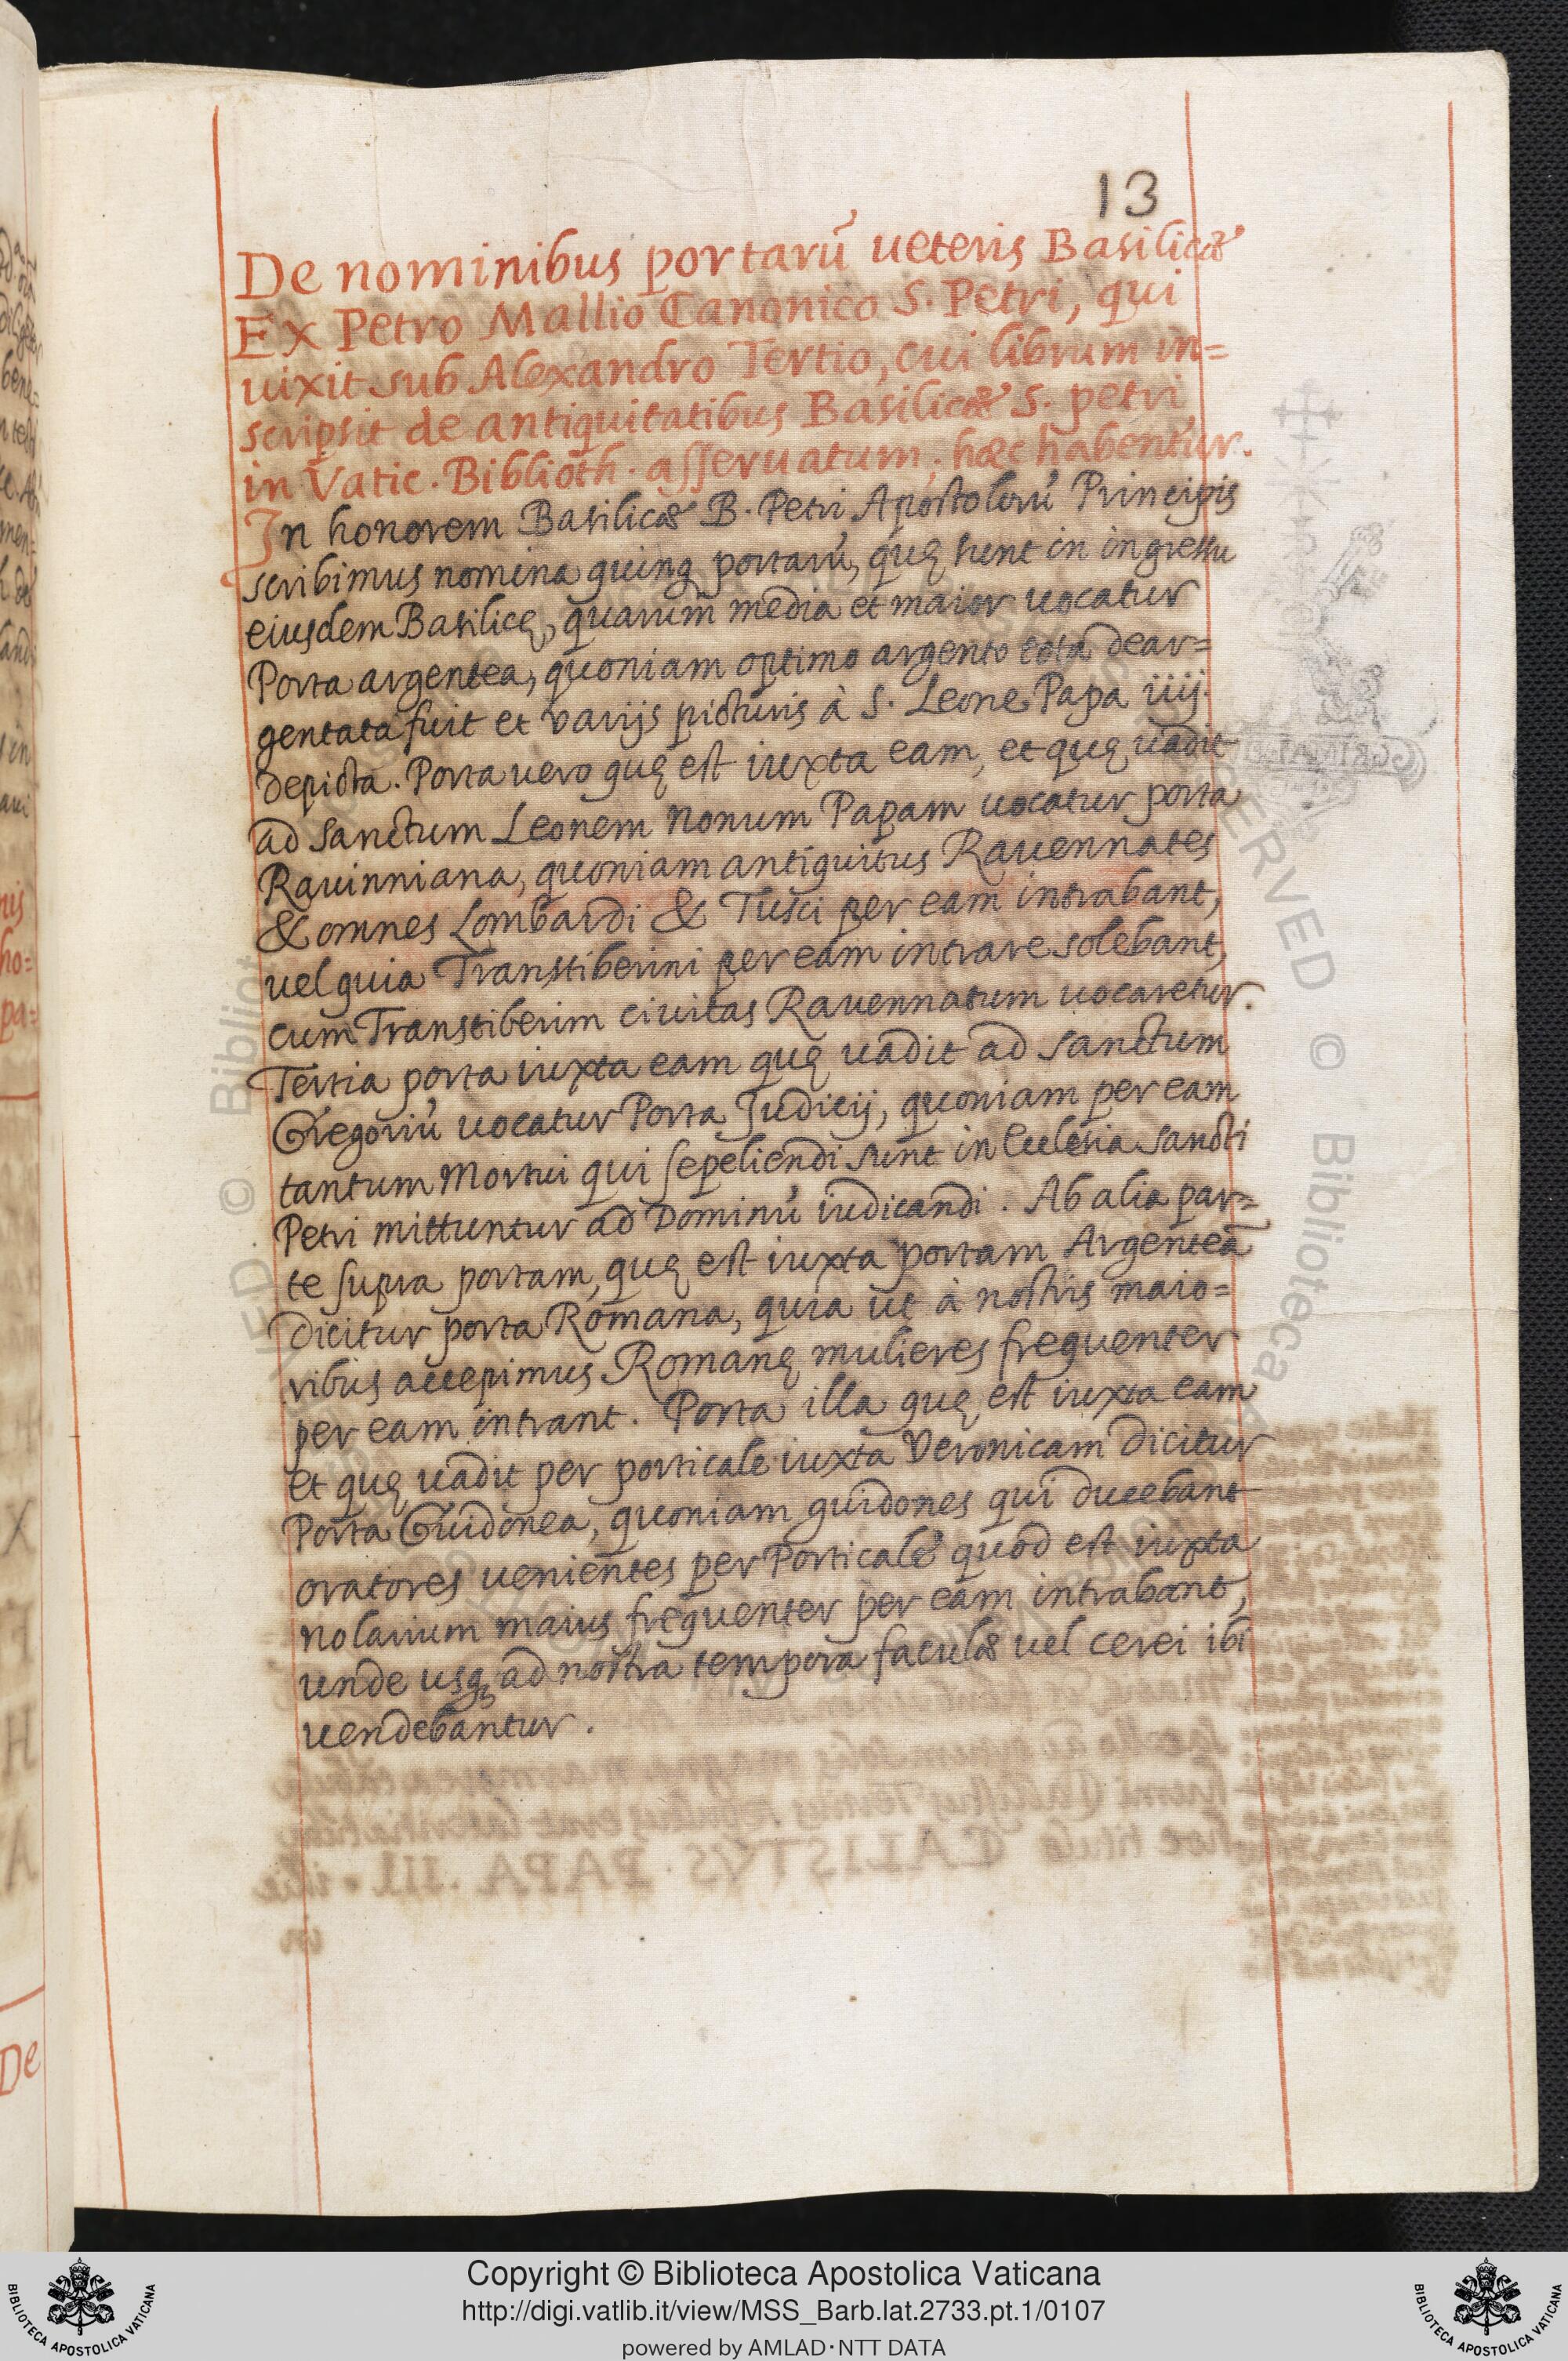 13
De nominibus portarũ ueteris Basilicæ
Ex Petro Mallio Canonico S. Petri, qui
uixit sub Alexandro Tertio, cui librum in=
scripsit de antiquitatibus Basilicæ S. petri
in Vatic. Biblioth. asseruatum, hæc habentur.
In honorem Basilicæ B. Petri Apostolorũ Principis
scribimus nomina quinq portarũ, quę sunt in ingressu
eiusdem Basilicę, quarum media et maior uocatur
Porta argentea, quoniam optimo argento tota dear=
gentata fuit et varijs picturis à S. Leone Papa iiij.
depicta. Porta uero quę est iuxta eam, et quę uadit
ad sanctum Leonem nonum Papam uocatur porta
Rauinniana, quoniam antiquitus Rauennates
& omnes Lombardi & Tusci per eam intrabant,
uel quia Transtiberini per eam intrare solebant,
cum Transtiberim ciuitas Rauennatum uocaretur.
Tertia porta iuxta eam quę uadit ad sanctum
Gregoriũ uocatur Porta Judicij, quoniam per eam
tantum Mortui qui sepeliendi sunt in Ecclesia sancti
Petri mittuntur ad Dominũ iudicandi. Ab alia par=
te supra portam, quę est iuxta portam Argenteã
dicitur porta Romana, quia ut à nostris maio=
ribus accepimus Romanę mulieres frequenter
per eam intrant. Porta illa quę est iuxta eam
et quę uadit per porticale iuxta Veronicam dicitur
Porta Guidonea, quoniam guidones qui ducebant
oratores uenientes per Porticale quod est iuxta
nolarium maius frequenter per eam intrabant,
unde usq ad nostra tempora faculæ uel cerei ibi
uendebantur.
Copyright © Biblioteca Apostolica Vaticana
http://digi.vatlib.it/view/MSS_Barb.lat.2733.pt.1/0107
powered by AMLAD·NTT DATA
BIBLIOTECA APOSTOLICA VATICANA
BIBLIOTECA APOSTOLICA VATICANA